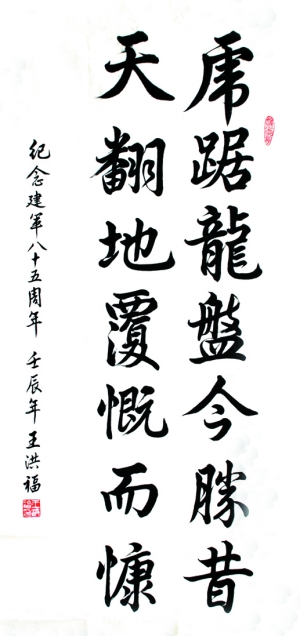 虎踞龍盤今勝昔
天翻地覆慨而慷
紀念建軍八十五周年 壬辰年 王洪福